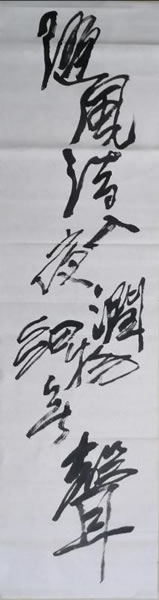 隨風潜入夜潤物細無聲